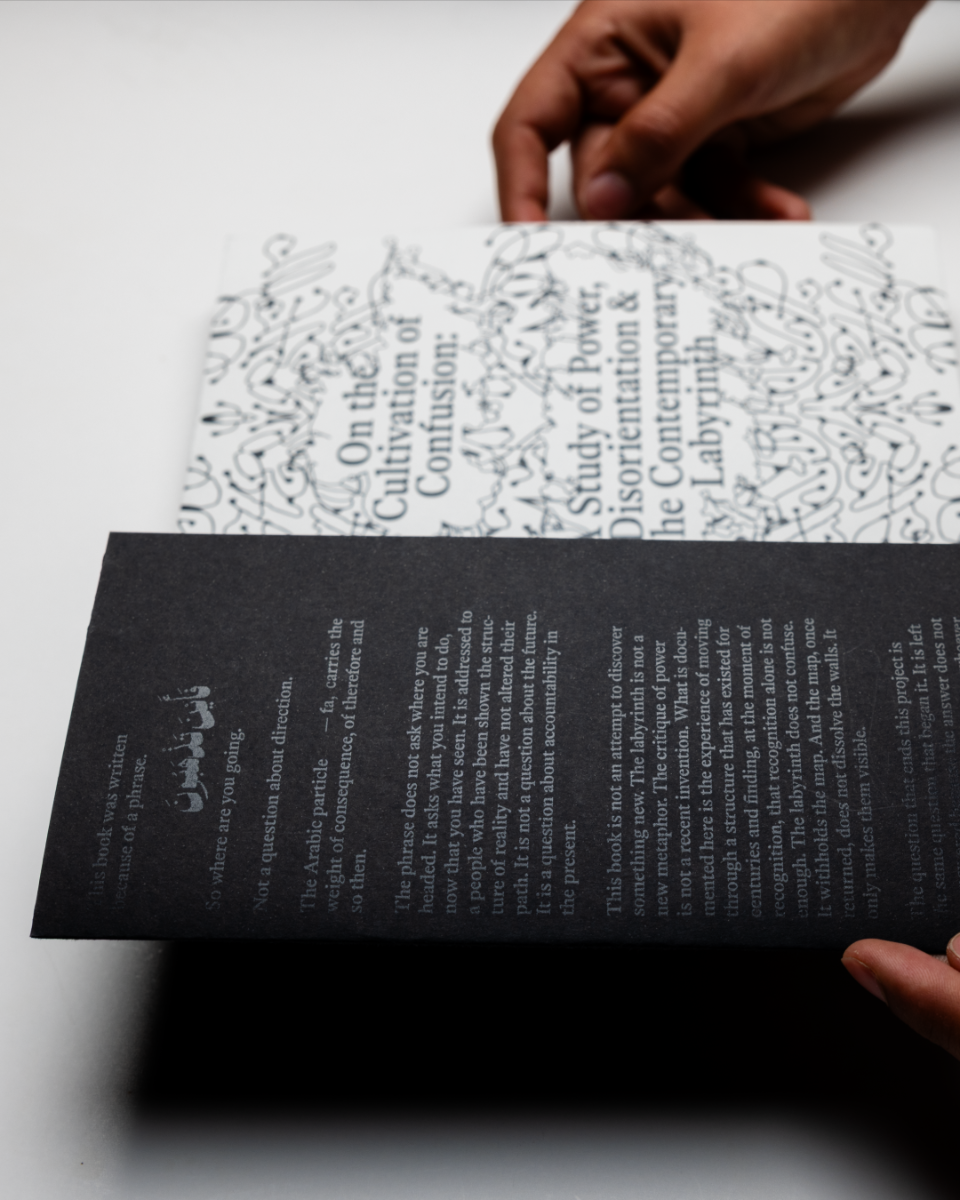 On the
Cultivation of
Confusion:
A Study of Power,
Disorientation &
The Contemporary
Labyrinth
This book was written
because of a phrase.
فأين تذهبون
So where are you going.
Not a question about direction.
The Arabic particle — fa, carries the
weight of consequence, of therefore and
so then.
The phrase does not ask where you are
headed. It asks what you intend to do,
now that you have seen. It is addressed to
a people who have been shown the struc-
ture of reality and have not altered their
path. It is not a question about the future.
It is a question about accountability in
the present.
This book is not an attempt to discover
something new. The labyrinth is not a
new metaphor. The critique of power
is not a recent invention. What is docu-
mented here is the experience of moving
through a structure that has existed for
centuries and finding, at the moment of
recognition, that recognition alone is not
enough. The labyrinth does not confuse.
It withholds the map. And the map, once
returned, does not dissolve the walls. It
only makes them visible.
The question that ends this project is
the same question that began it. It is left
the answer does not